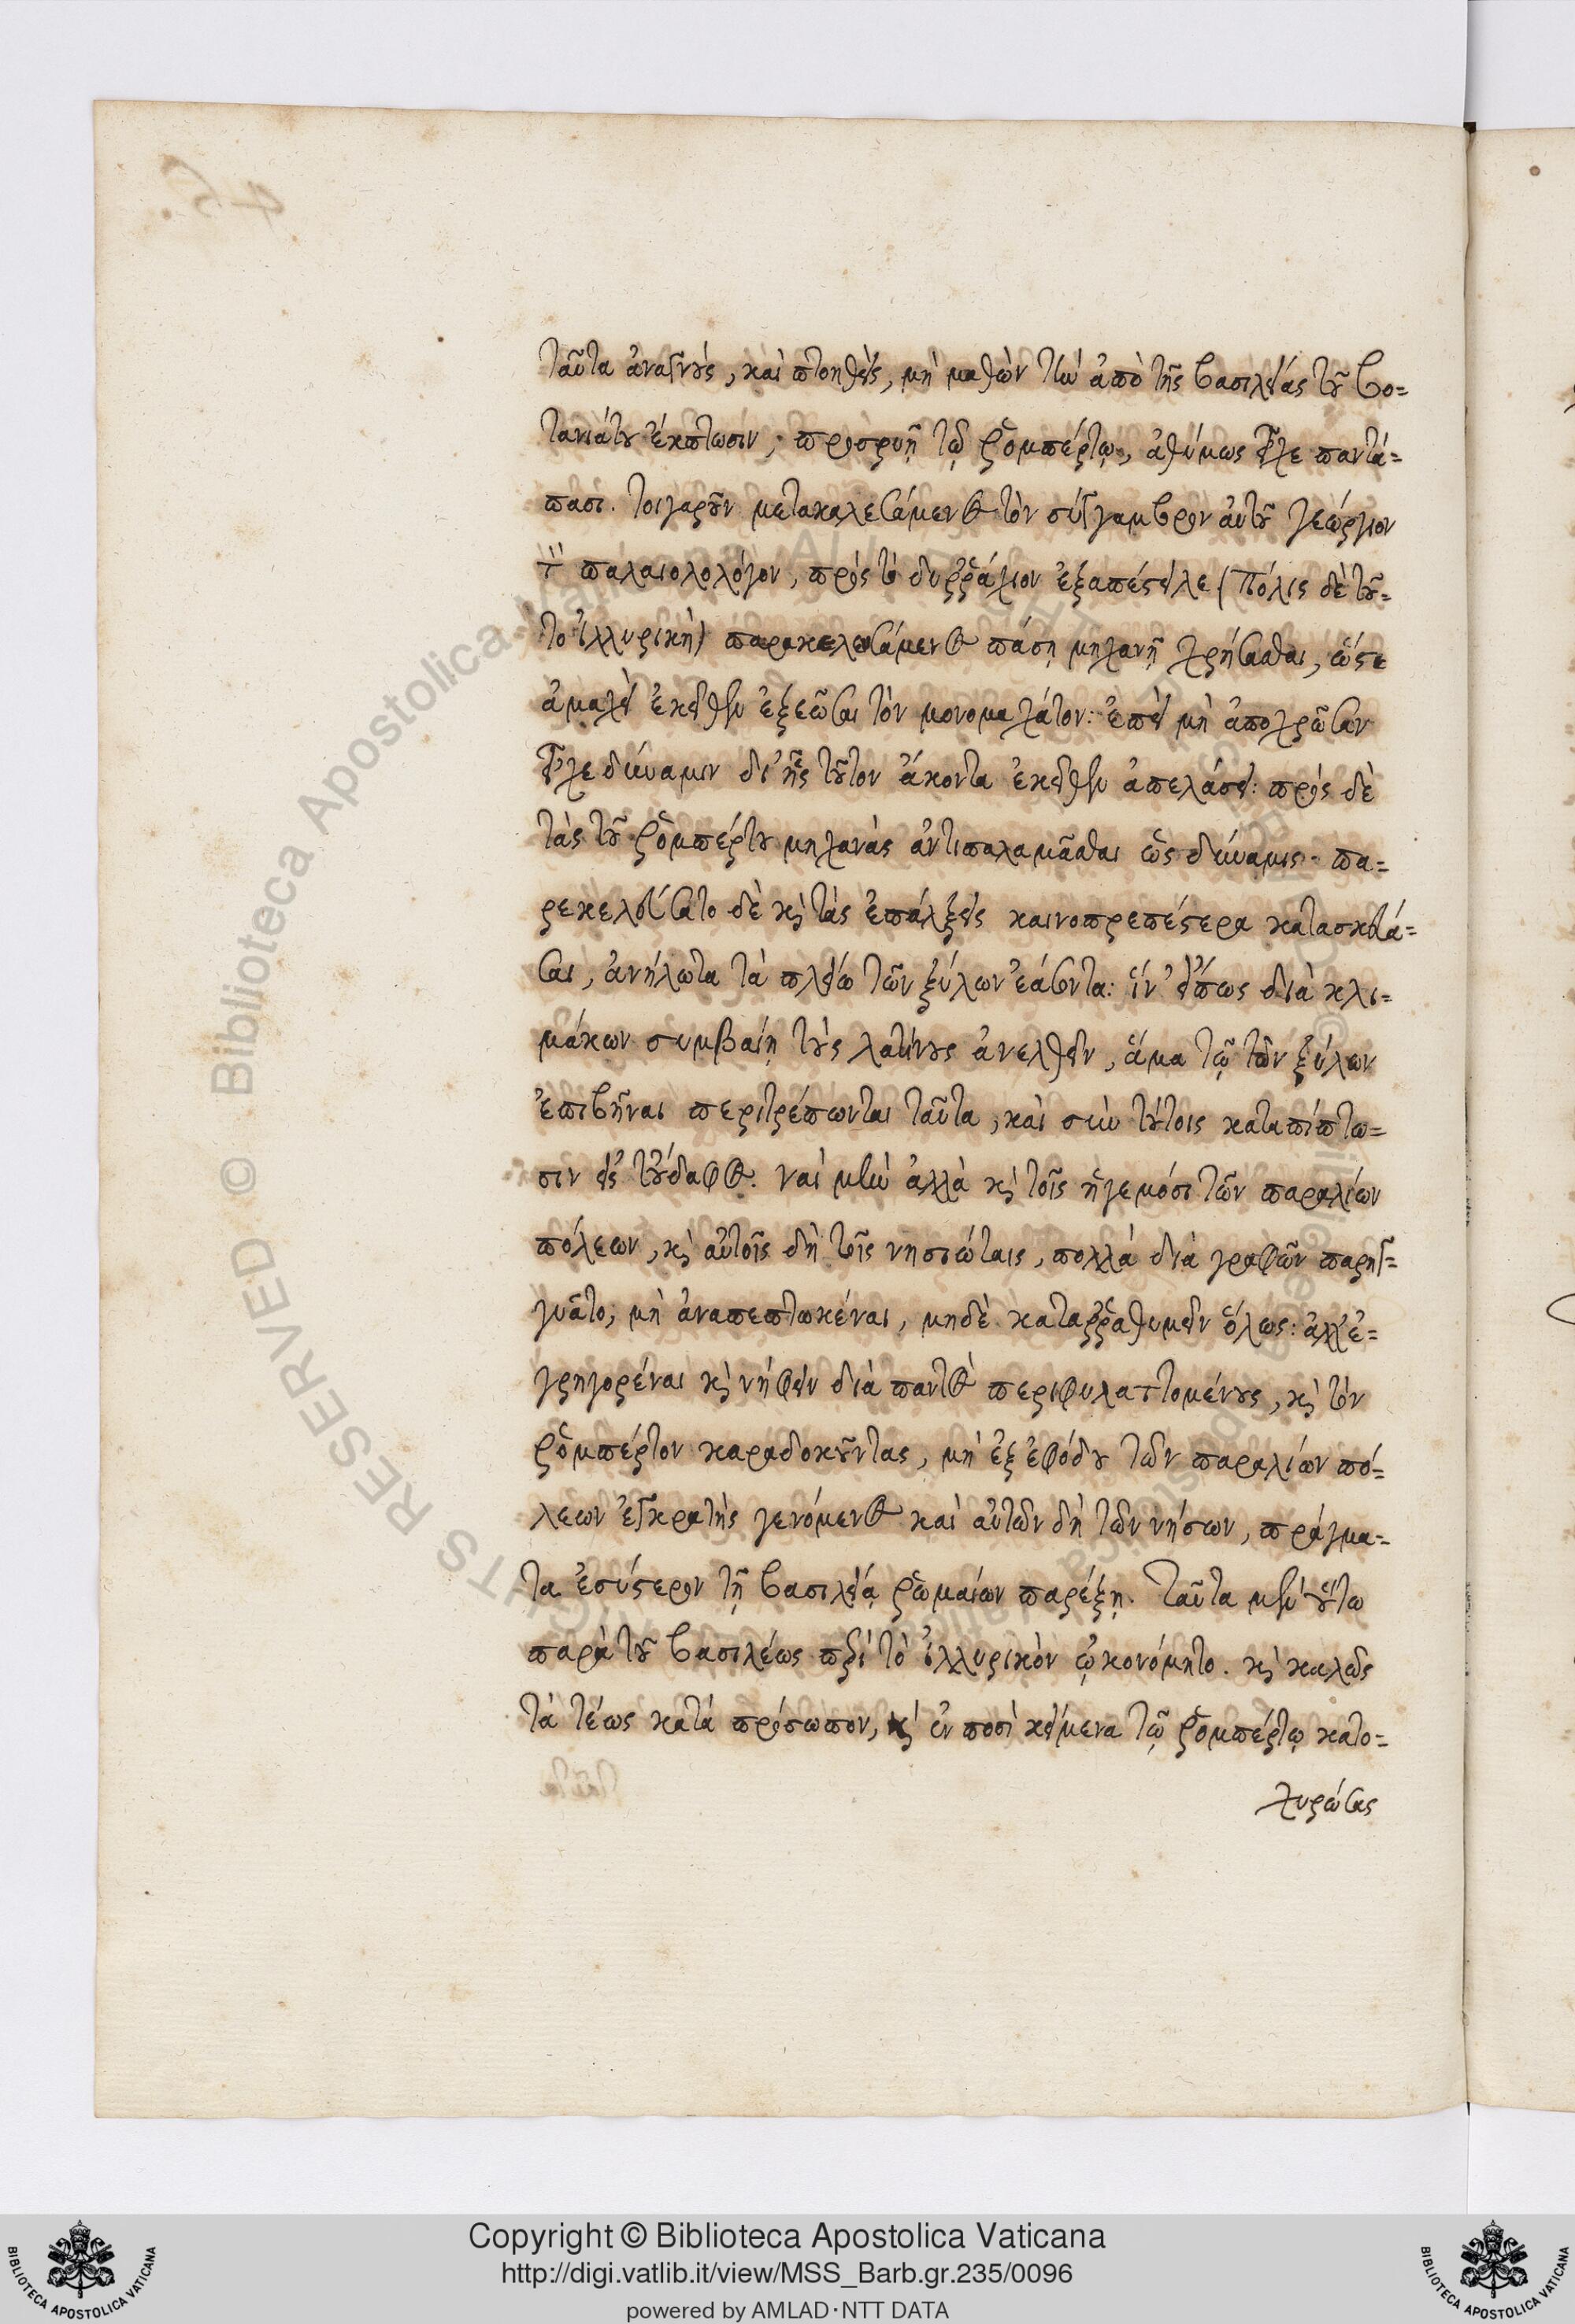 ταῦτα ἀναγνούς, καὶ πτοηθείς, μὴ μαθὼν τὴν ἀπὸ τῆς βασιλείας τοῦ Βο=
τανιάτου ἔκπτωσιν, προσρυῇ τῷ ῥομπέρτῳ, ἀθύμως εἶχε παντά=
πασι. τοιγαροῦν μετακαλεσάμενος τὸν σύγγαμβρον αὐτοῦ γεώργιον
τὸν παλαιολολόγον, πρὸς τὸ δυῤῥάχιον ἐξαπέστειλε (πόλις δὲ τοῦ=
το ἰλλυρικὴ) παρακελευσάμενος πάσῃ μηχανῇ χρήσασθαι, ὥστε
ἀμαχεὶ ἐκεῖθεν ἐξεῶσαι τὸν μονομαχάτον: ἐπεὶ μὴ ἀποχρῶσαν
εἶχε δύναμιν δι' ἧς τοῦτον ἄκοντα ἐκεῖθεν ἀπελάσει: πρὸς δὲ
τὰς τοῦ ῥομπέρτου μηχανὰς ἀντιπαλαμᾶσθαι ὡς δύναμις. πα=
ρεκελεύσατο δὲ καὶ τὰς ἐπάλξεις καινοπρεπέστερα κατασκευά=
σαι, ἀνήλωτα τὰ πλείω τῶν ξύλων ἐάσοντα: ἵν' εἴπως διὰ κλι=
μάκων συμβαίη τοὺς λατίνους ἀνελθεῖν, ἅμα τῷ τῶν ξύλων
ἐπιβῆναι περιτρέπωνται ταῦτα, καὶ σὺν τούτοις καταπίπτω=
σιν εἰς τοὔδαφος. ναὶ μὴν ἀλλὰ καὶ τοῖς ἡγεμόσι τῶν παραλίων
πόλεων, καὶ αὐτοῖς δὴ τοῖς νησιώταις, πολλὰ διὰ γραφῶν παρηγ=
γυᾶτο, μὴ ἀναπεπτωκέναι, μηδὲ καταῤῥαθυμεῖν ὅλως: ἀλλ' ἐ=
γρηγορέναι καὶ νήφειν διὰ παντὸς περιφυλαττομένους, καὶ τὸν
ῥομπέρτον καραδοκοῦντας, μὴ ἐξ ἐφόδου τῶν παραλίων πό=
λεων ἐγκρατὴς γενόμενος καὶ αὐτῶν δὴ τῶν νήσων, πράγμα=
τα ἐσύστερον τῇ βασιλείᾳ ῥωμαίων παρέξῃ. Ταῦτα μὲν οὕτω
παρὰ τοῦ βασιλέως περὶ τὸ ἰλλυρικὸν ᾠκονόμητο. καὶ καλῶς
τὰ τέως κατὰ πρόσωπον, καὶ ἐν ποσὶ κείμενα τῷ ῥομπέρτῳ κατο=
χυρώσας
Copyright © Biblioteca Apostolica Vaticana
http://digi.vatlib.it/view/MSS_Barb.gr.235/0096
powered by AMLAD·NTT DATA